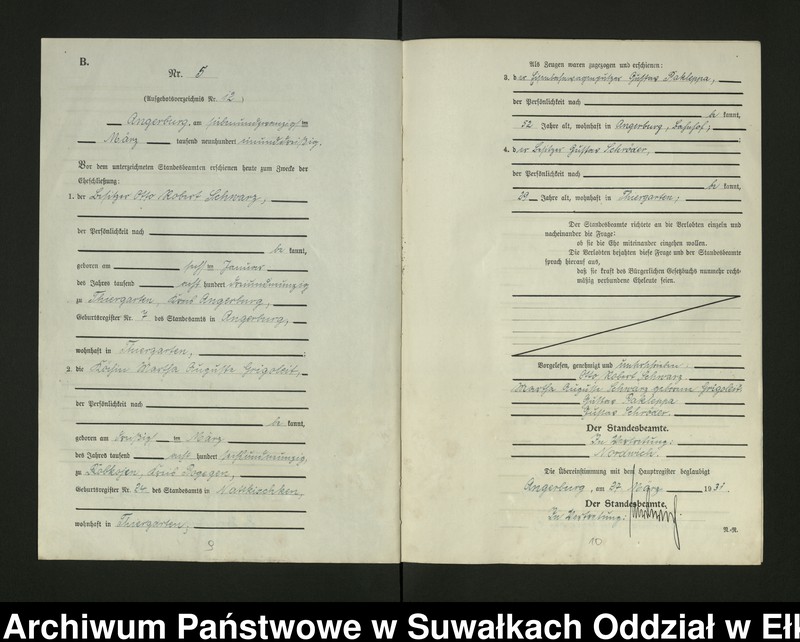 B.
Nr. 5
(Aufgebotsverzeichnis Nr. 12)
Angerburg, am siebenundzwanzigsten
März tausend neunhundert einunddreißig.
Vor dem unterzeichneten Standesbeamten erschienen heute zum Zwecke der
Eheschließung:
1. der Besitzer Otto Robert Schwarz,
der Persönlichkeit nach
be kannt,
geboren am Januar
des Jahres tausend acht hundert
zu Thiergarten, Kreis Angerburg,
Geburtsregister Nr. 7 des Standesamts in Angerburg,
wohnhaft in Thiergarten,
2. die Köchin Martha Auguste Grigoleit,
der Persönlichkeit nach
be kannt,
geboren am März
des Jahres tausend acht hundert
zu Kreis Pogegen,
Geburtsregister Nr. 24 des Standesamts in Nattkischken,
wohnhaft in Thiergarten,
9
Als Zeugen waren zugezogen und erschienen:
3. der Gustav Pakleppa,
der Persönlichkeit nach
be kannt,
52 Jahre alt, wohnhaft in Angerburg, Bahnhof;
4. der Besitzer Gustav Schröder,
der Persönlichkeit nach
be kannt,
39 Jahre alt, wohnhaft in Thiergarten;
Der Standesbeamte richtete an die Verlobten einzeln und
nacheinander die Frage:
ob sie die Ehe miteinander eingehen wollen.
Die Verlobten bejahten diese Frage und der Standesbeamte
sprach hierauf aus,
daß sie kraft des Bürgerlichen Gesetzbuchs nunmehr recht-
mäßig verbundene Eheleute seien.
Vorgelesen, genehmigt und unterschrieben:
Otto Robert Schwarz
Martha Auguste Schwarz geborene Grigoleit
Gustav Pakleppa
Gustav Schröder.
Der Standesbeamte.
In Vertretung:
Nordwich.
Die Übereinstimmung mit dem Hauptregister beglaubigt
Angerburg, am 27. März 1931.
Der Standesbeamte.
In Vertretung:
R.-R.
10
Archiwum Państwowe w Suwałkach Oddział w Eł